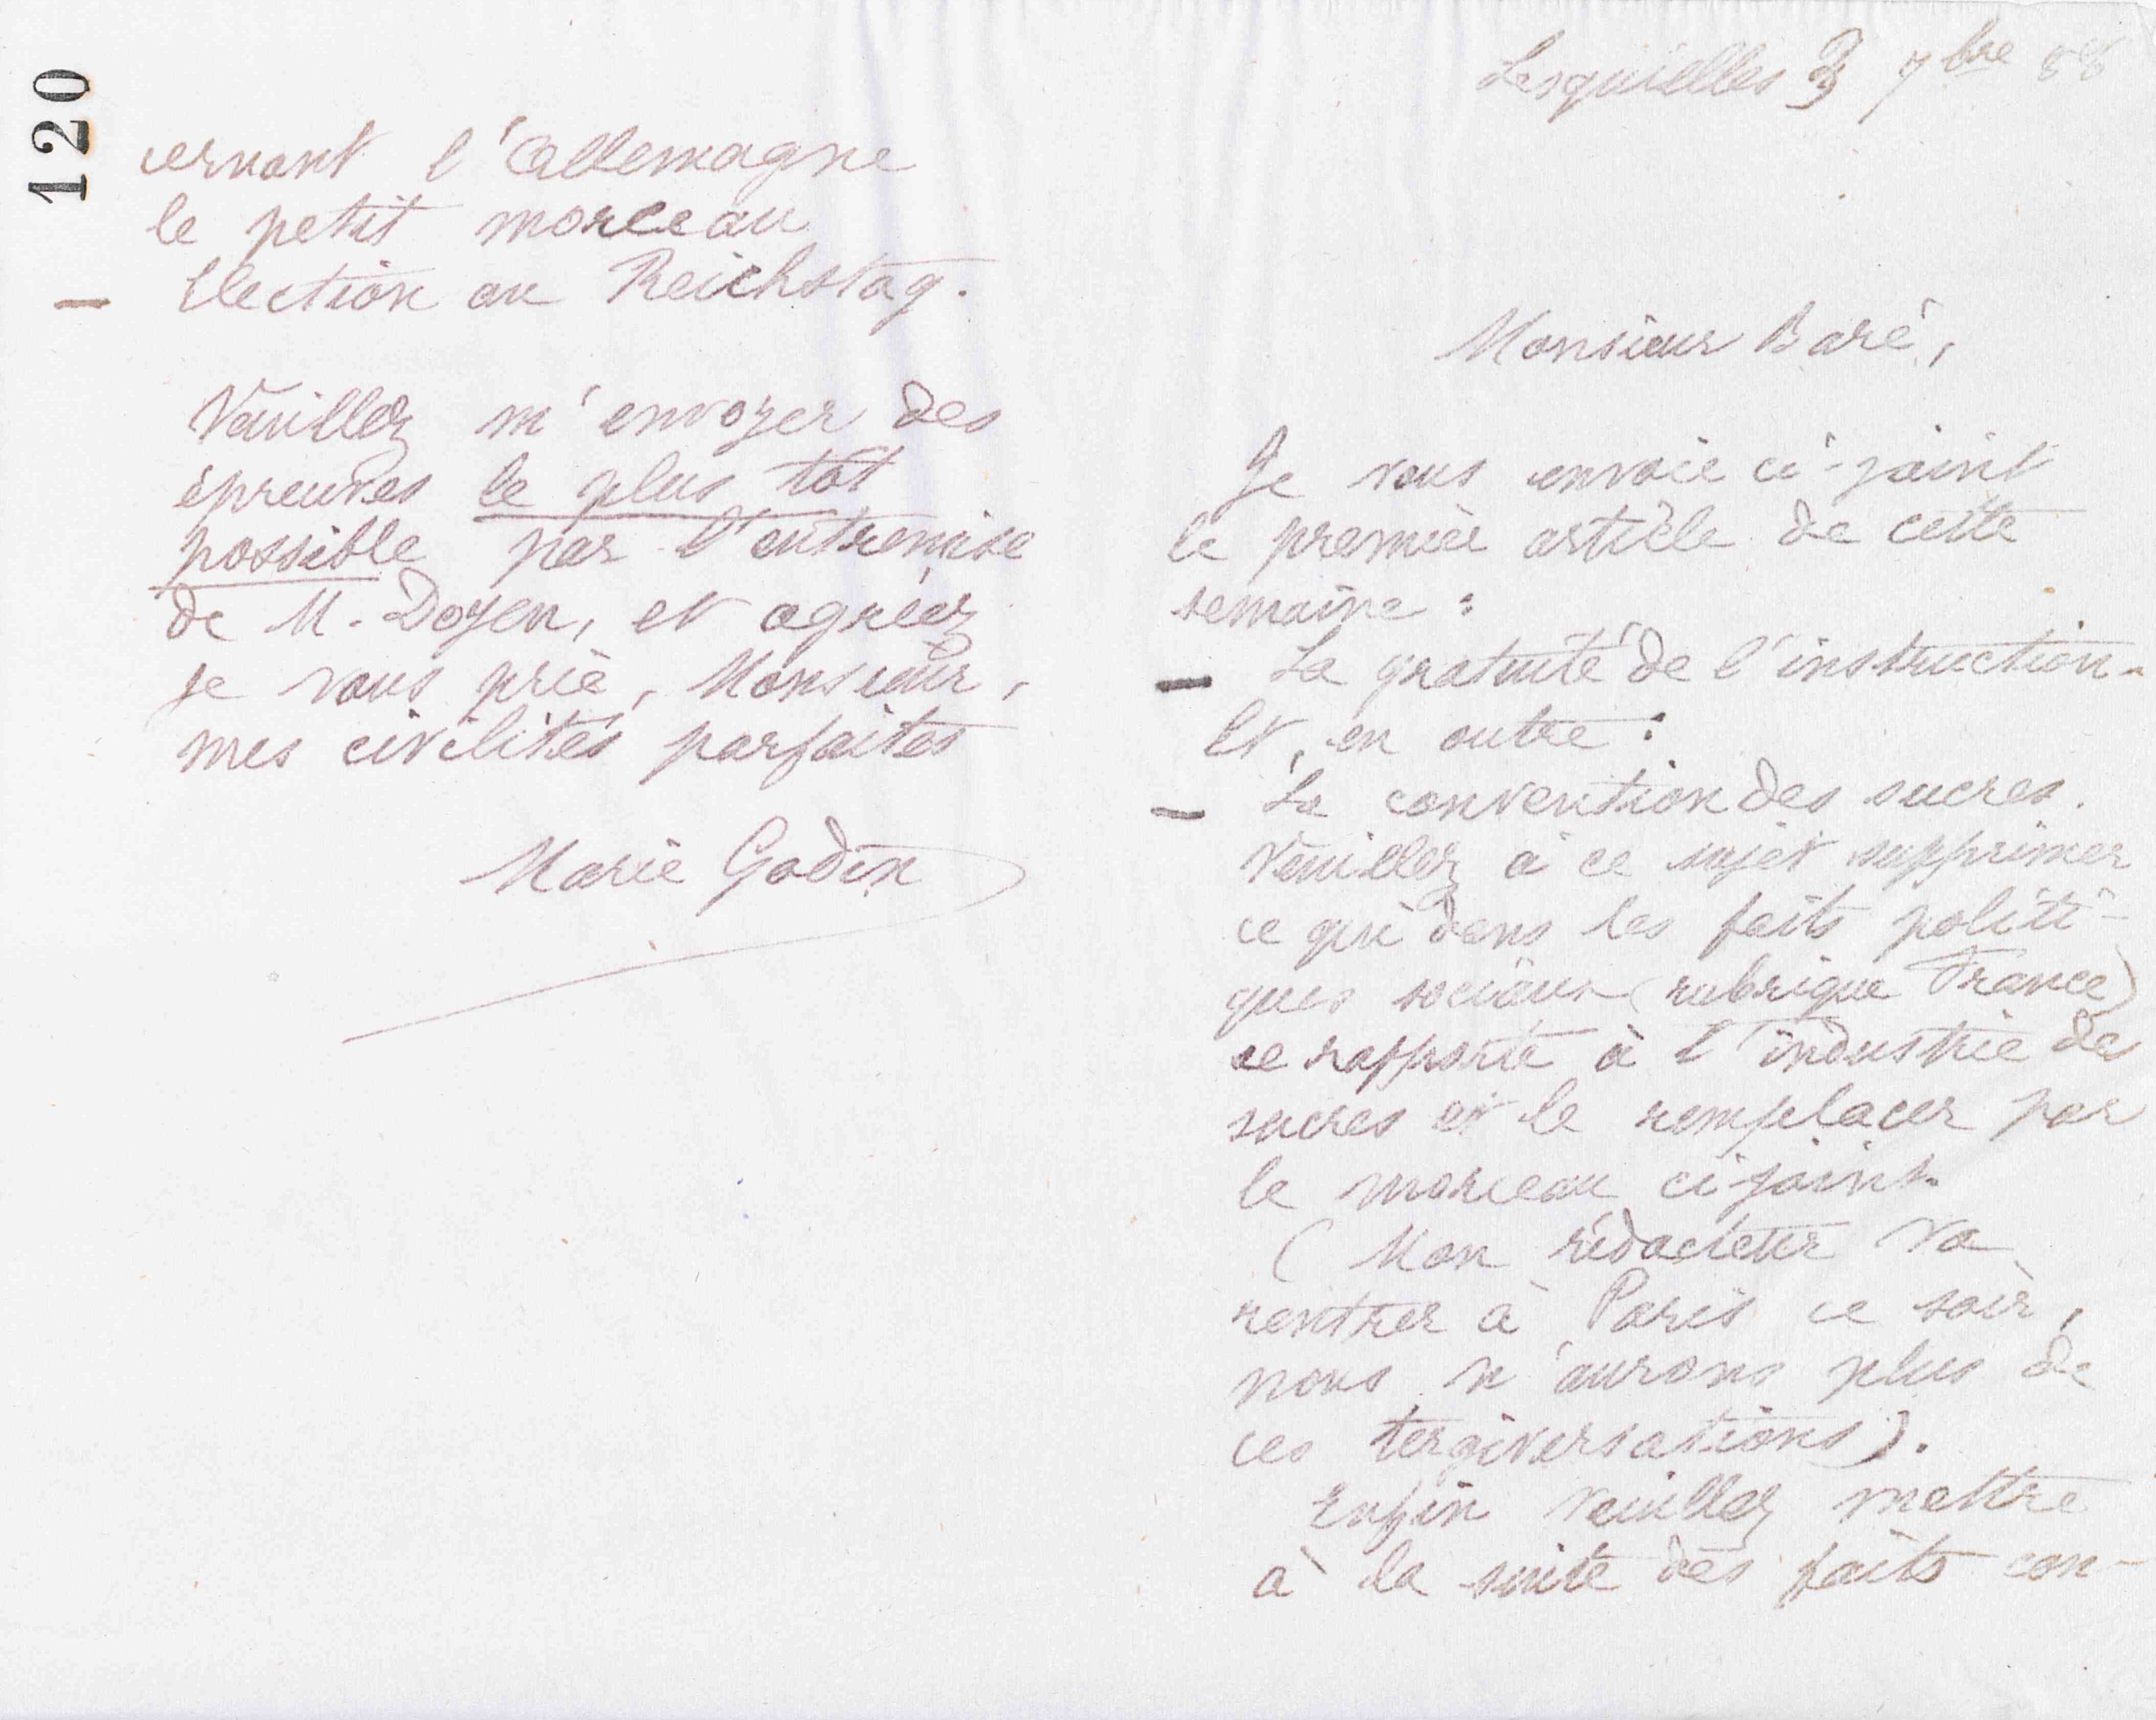 120
Lesquielles 3 7bre 88
Monsieur Baré,
Je vous envoie ci-joint
le premier article de cette
semaine :
— La gratuité de l'instruction.
Et, en outre :
— La convention des sucres.
Veuillez à ce sujet supprimer
ce qui dans les faits politi-
ques sociaux (rubrique France)
se rapporte à l'industrie des
sucres et le remplacer par
le morceau ci joint.
(Mon rédacteur va
rentrer à Paris ce soir,
nous n'aurons plus de
ces tergiversations).
Enfin veuillez mettre
à la suite des faits con-
cernant l'Allemagne
le petit morceau
— Election au Reichstag.
Veuillez m'envoyer des
épreuves le plus tôt
possible par l'entremise
de M. Doyen, et agréez
je vous prie, Monsieur,
mes civilités parfaites
Marie Godin